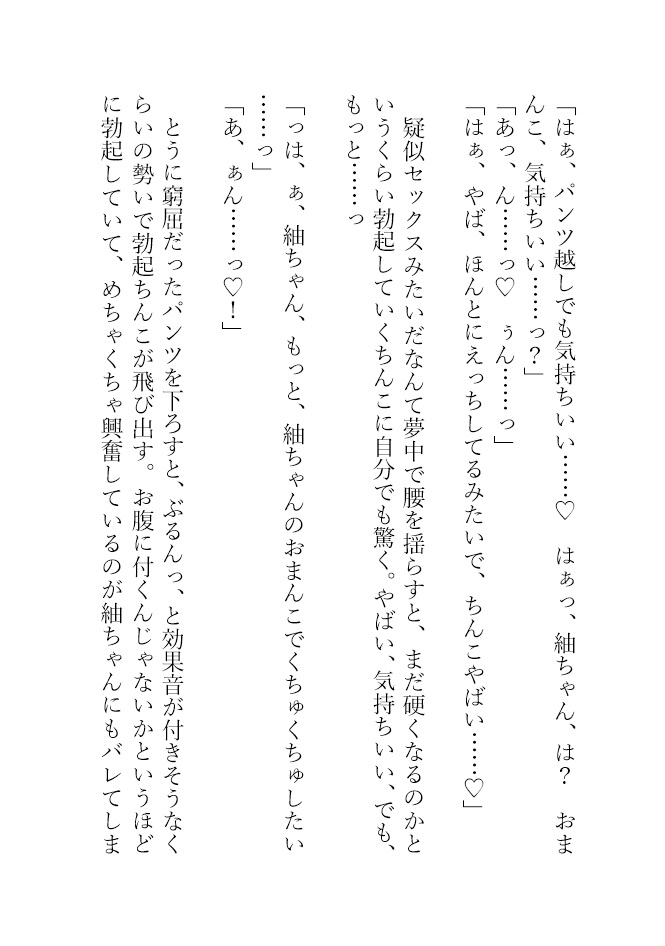 「はぁ、パンツ越しでも気持ちいい……♡　はぁっ、紬ちゃん、は？　おま
んこ、気持ちいい……っ？」
「あっ、ん……っ♡　ぅん……っ」
「はぁ、やば、ほんとにえっちしてるみたいで、ちんこやばい……♡」
疑似セックスみたいだなんて夢中で腰を揺らすと、まだ硬くなるのかと
いうくらい勃起していくちんこに自分でも驚く。やばい、気持ちいい、でも、
もっと……っ
「っは、ぁ、紬ちゃん、もっと、紬ちゃんのおまんこでくちゅくちゅしたい
……っ」
「あ、ぁん……っ♡！」
とうに窮屈だったパンツを下ろすと、ぶるんっ、と効果音が付きそうなく
らいの勢いで勃起ちんこが飛び出す。お腹に付くんじゃないかというほど
に勃起していて、めちゃくちゃ興奮しているのが紬ちゃんにもバレてしま